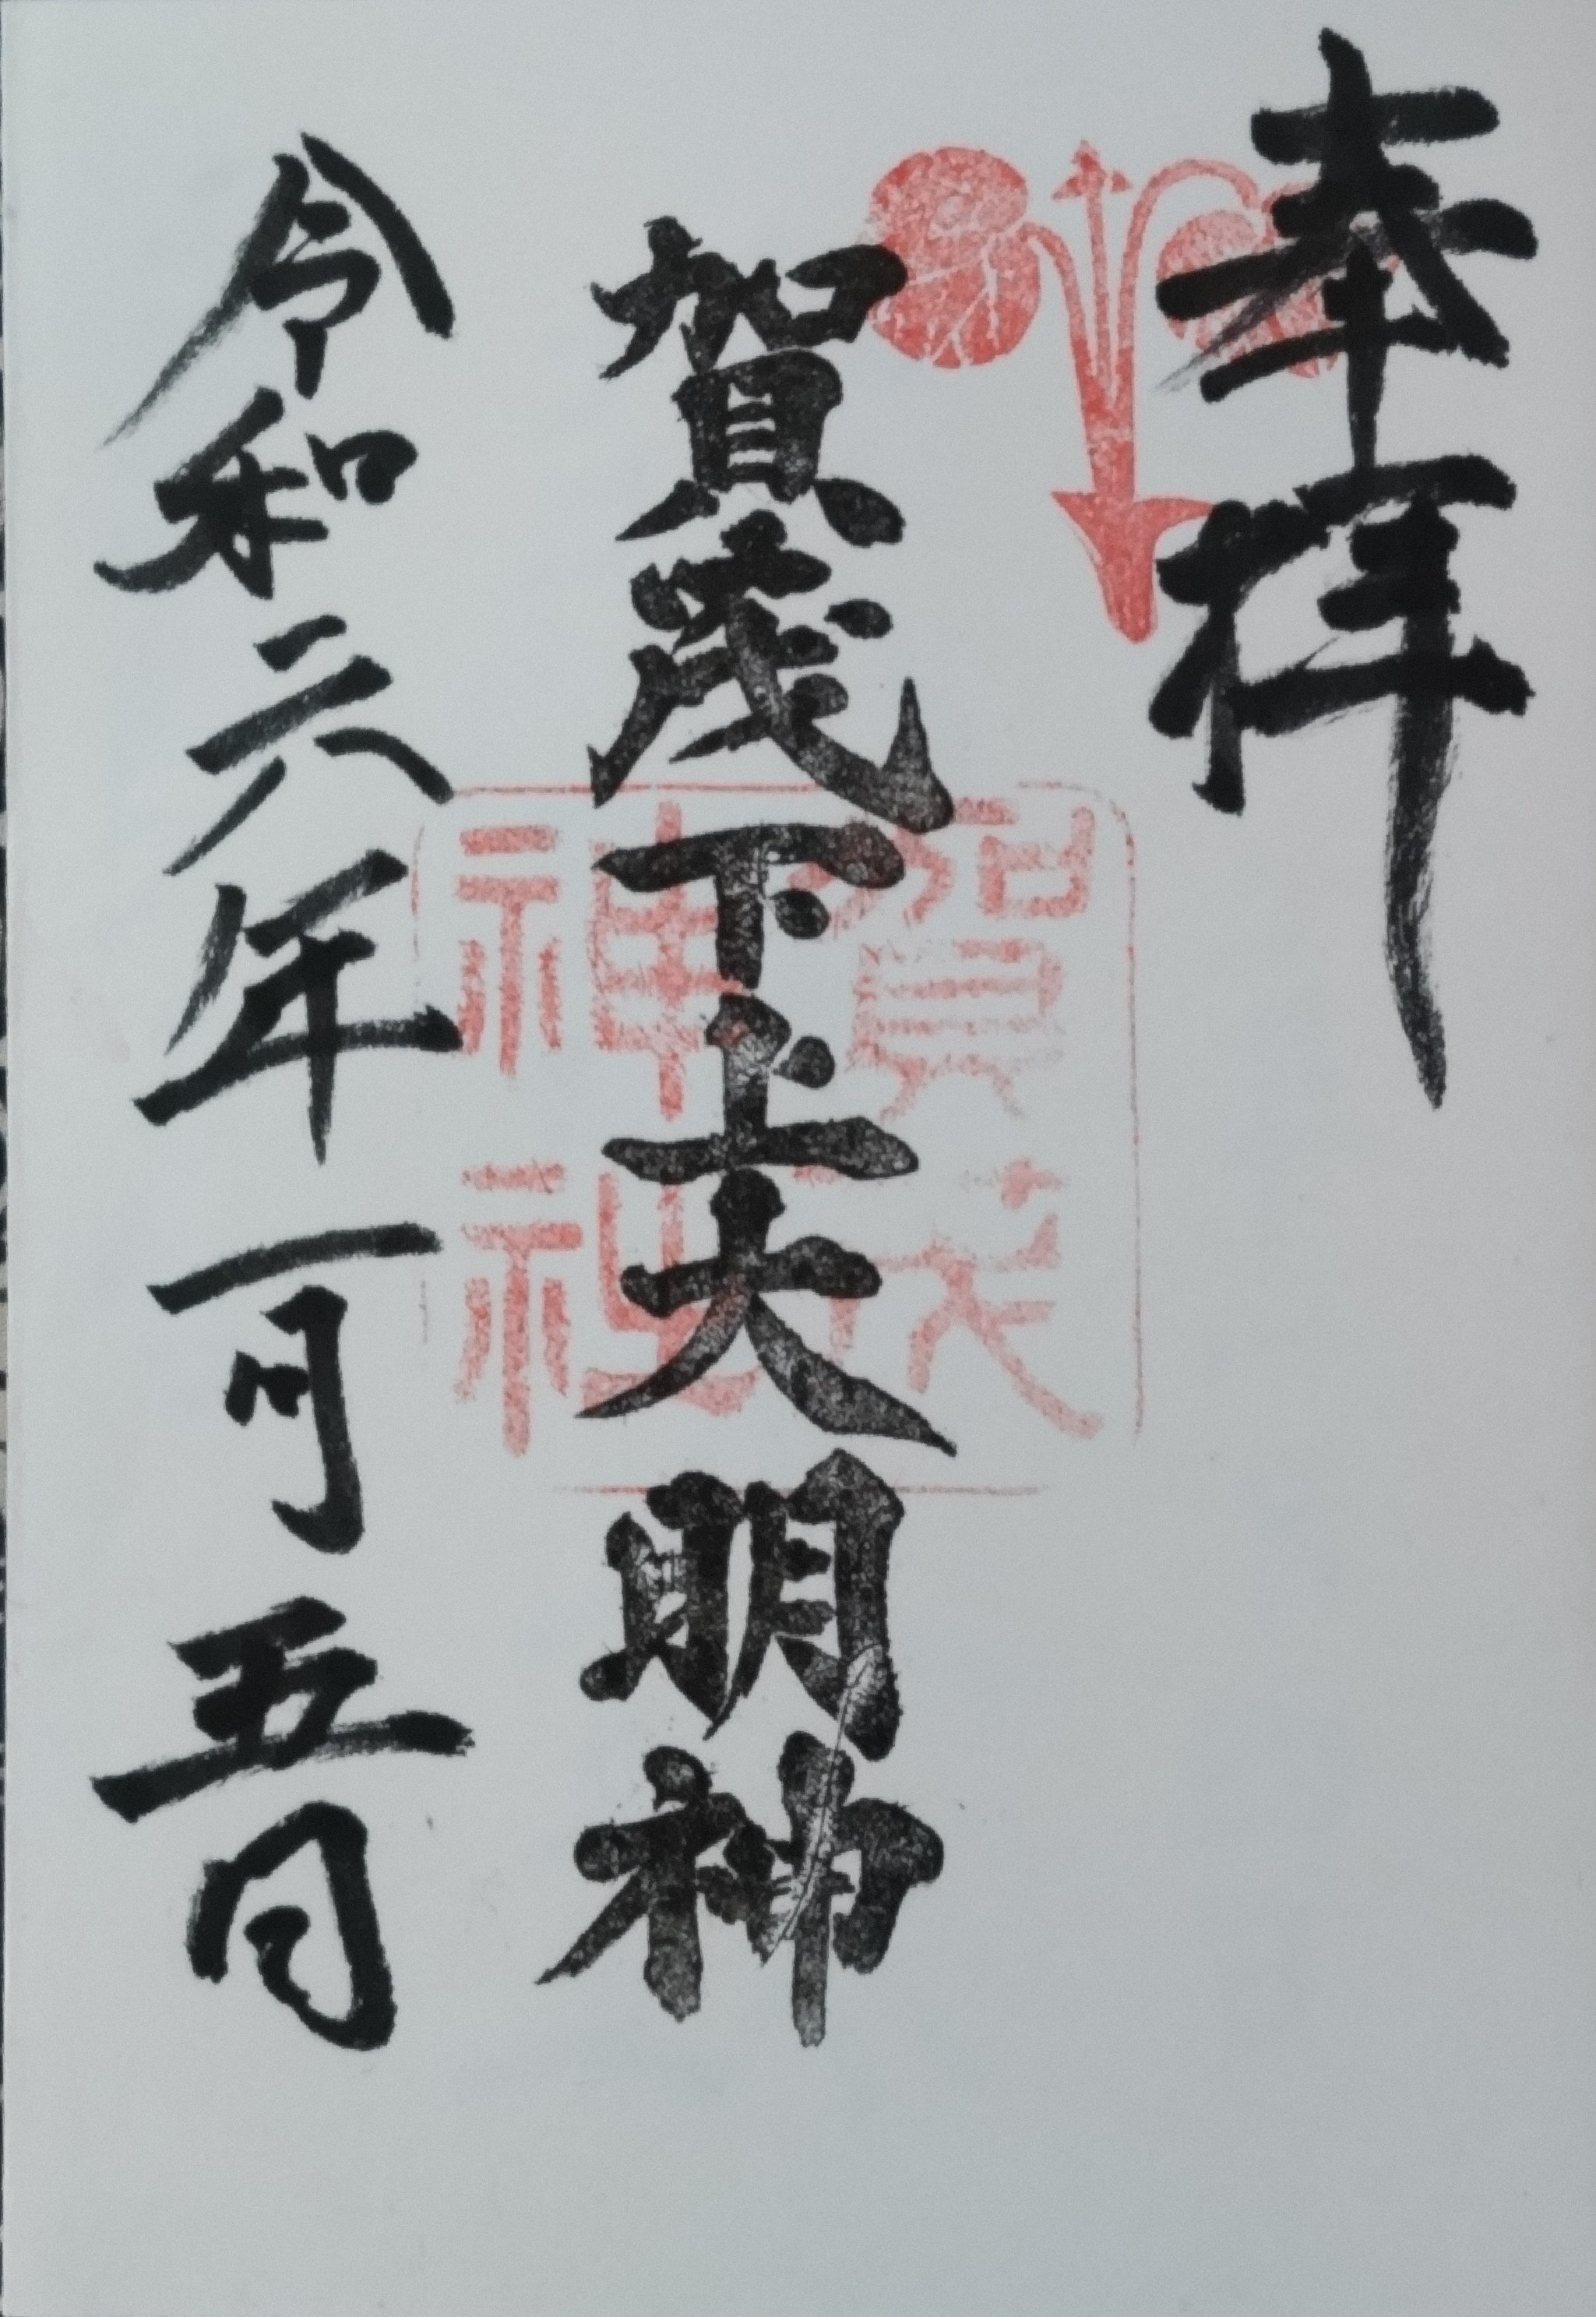 奉拝
賀茂下上大明神
賀茂
神社
令和六年一月五日